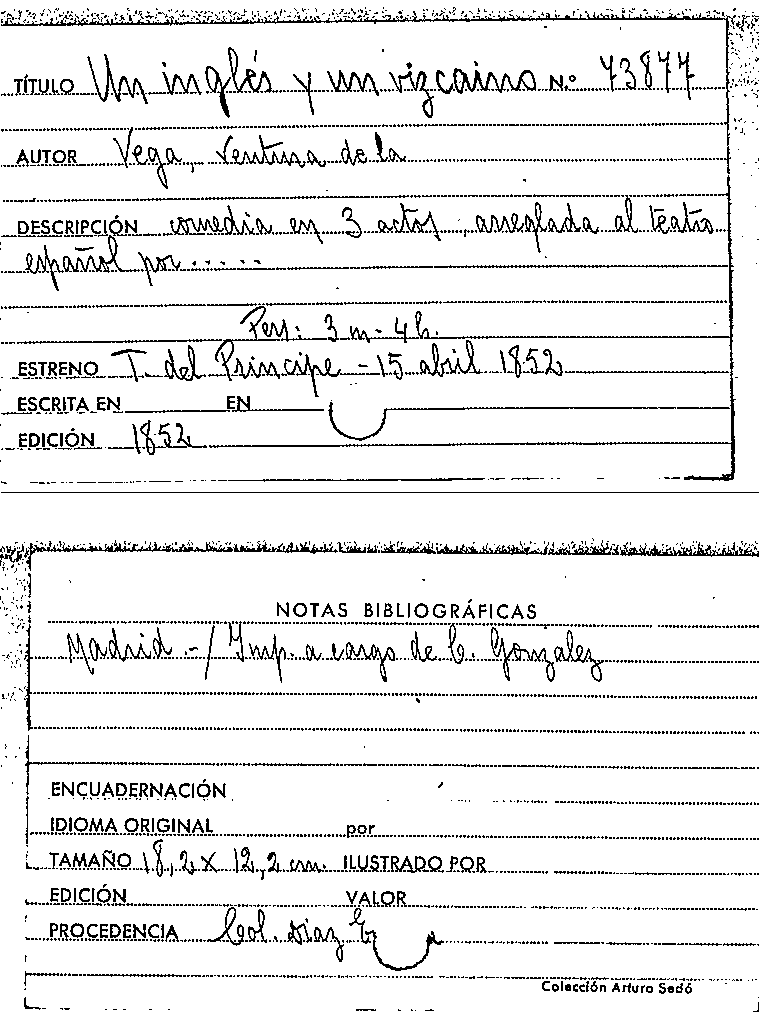 TÍTULO Un inglés y un vizcaino N.º 73877
AUTOR Vega, Ventura de la
DESCRIPCIÓN comedia en 3 actos, arreglada al teatro
español por......
Pers: 3 m - 4 h.
ESTRENO T. del Principe - 15 abril 1852
ESCRITA EN EN
EDICIÓN 1852
NOTAS BIBLIOGRÁFICAS
Madrid.-/ Imp. a cargo de C. Gonzalez
ENCUADERNACIÓN
IDIOMA ORIGINAL por
TAMAÑO 18,2 x 12,2 cm. ILUSTRADO POR
EDICIÓN VALOR
PROCEDENCIA Col. Diaz
Colección Arturo Sedó